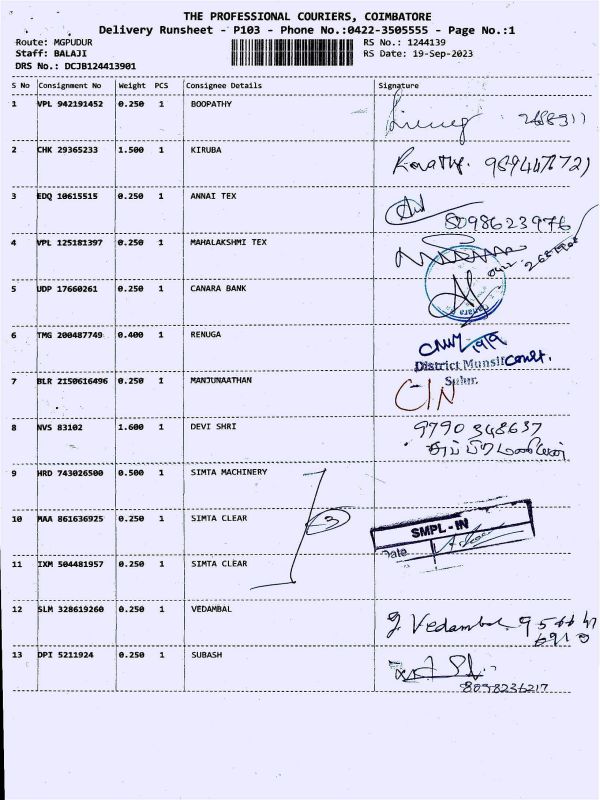 THE PROFESSIONAL COURIERS, COIMBATORE
Delivery Runsheet - P103 - Phone No.:0422-3505555 - Page No.:1
Route: MGPUDUR RS No.: 1244139
Staff: BALAJI RS Date: 19-Sep-2023
DRS No.: DCJB124413901
S No Consignment No Weight PCS Consignee Details Signature
1 VPL 942191452 0.250 1 BOOPATHY
2 CHK 29365233 1.500 1 KIRUBA
3 EDQ 10615515 0.250 1 ANNAI TEX
8098623976
4 VPL 125181397 0.250 1 MAHALAKSHMI TEX
5 UDP 17660261 0.250 1 CANARA BANK
6 TMG 200487749 0.400 1 RENUGA
District Munsif Court.
Sulur.
7 BLR 2150616496 0.250 1 MANJUNAATHAN CIN
8 NVS 83102 1.600 1 DEVI SHRI 9790 348637
9 HRD 743026500 0.500 1 SIMTA MACHINERY
10 MAA 861636925 0.250 1 SIMTA CLEAR 3 SMPL - IN
Date
11 IXM 504481957 0.250 1 SIMTA CLEAR
12 SLM 328619260 0.250 1 VEDAMBAL Vedambal
13 DPI 5211924 0.250 1 SUBASH
8098236217